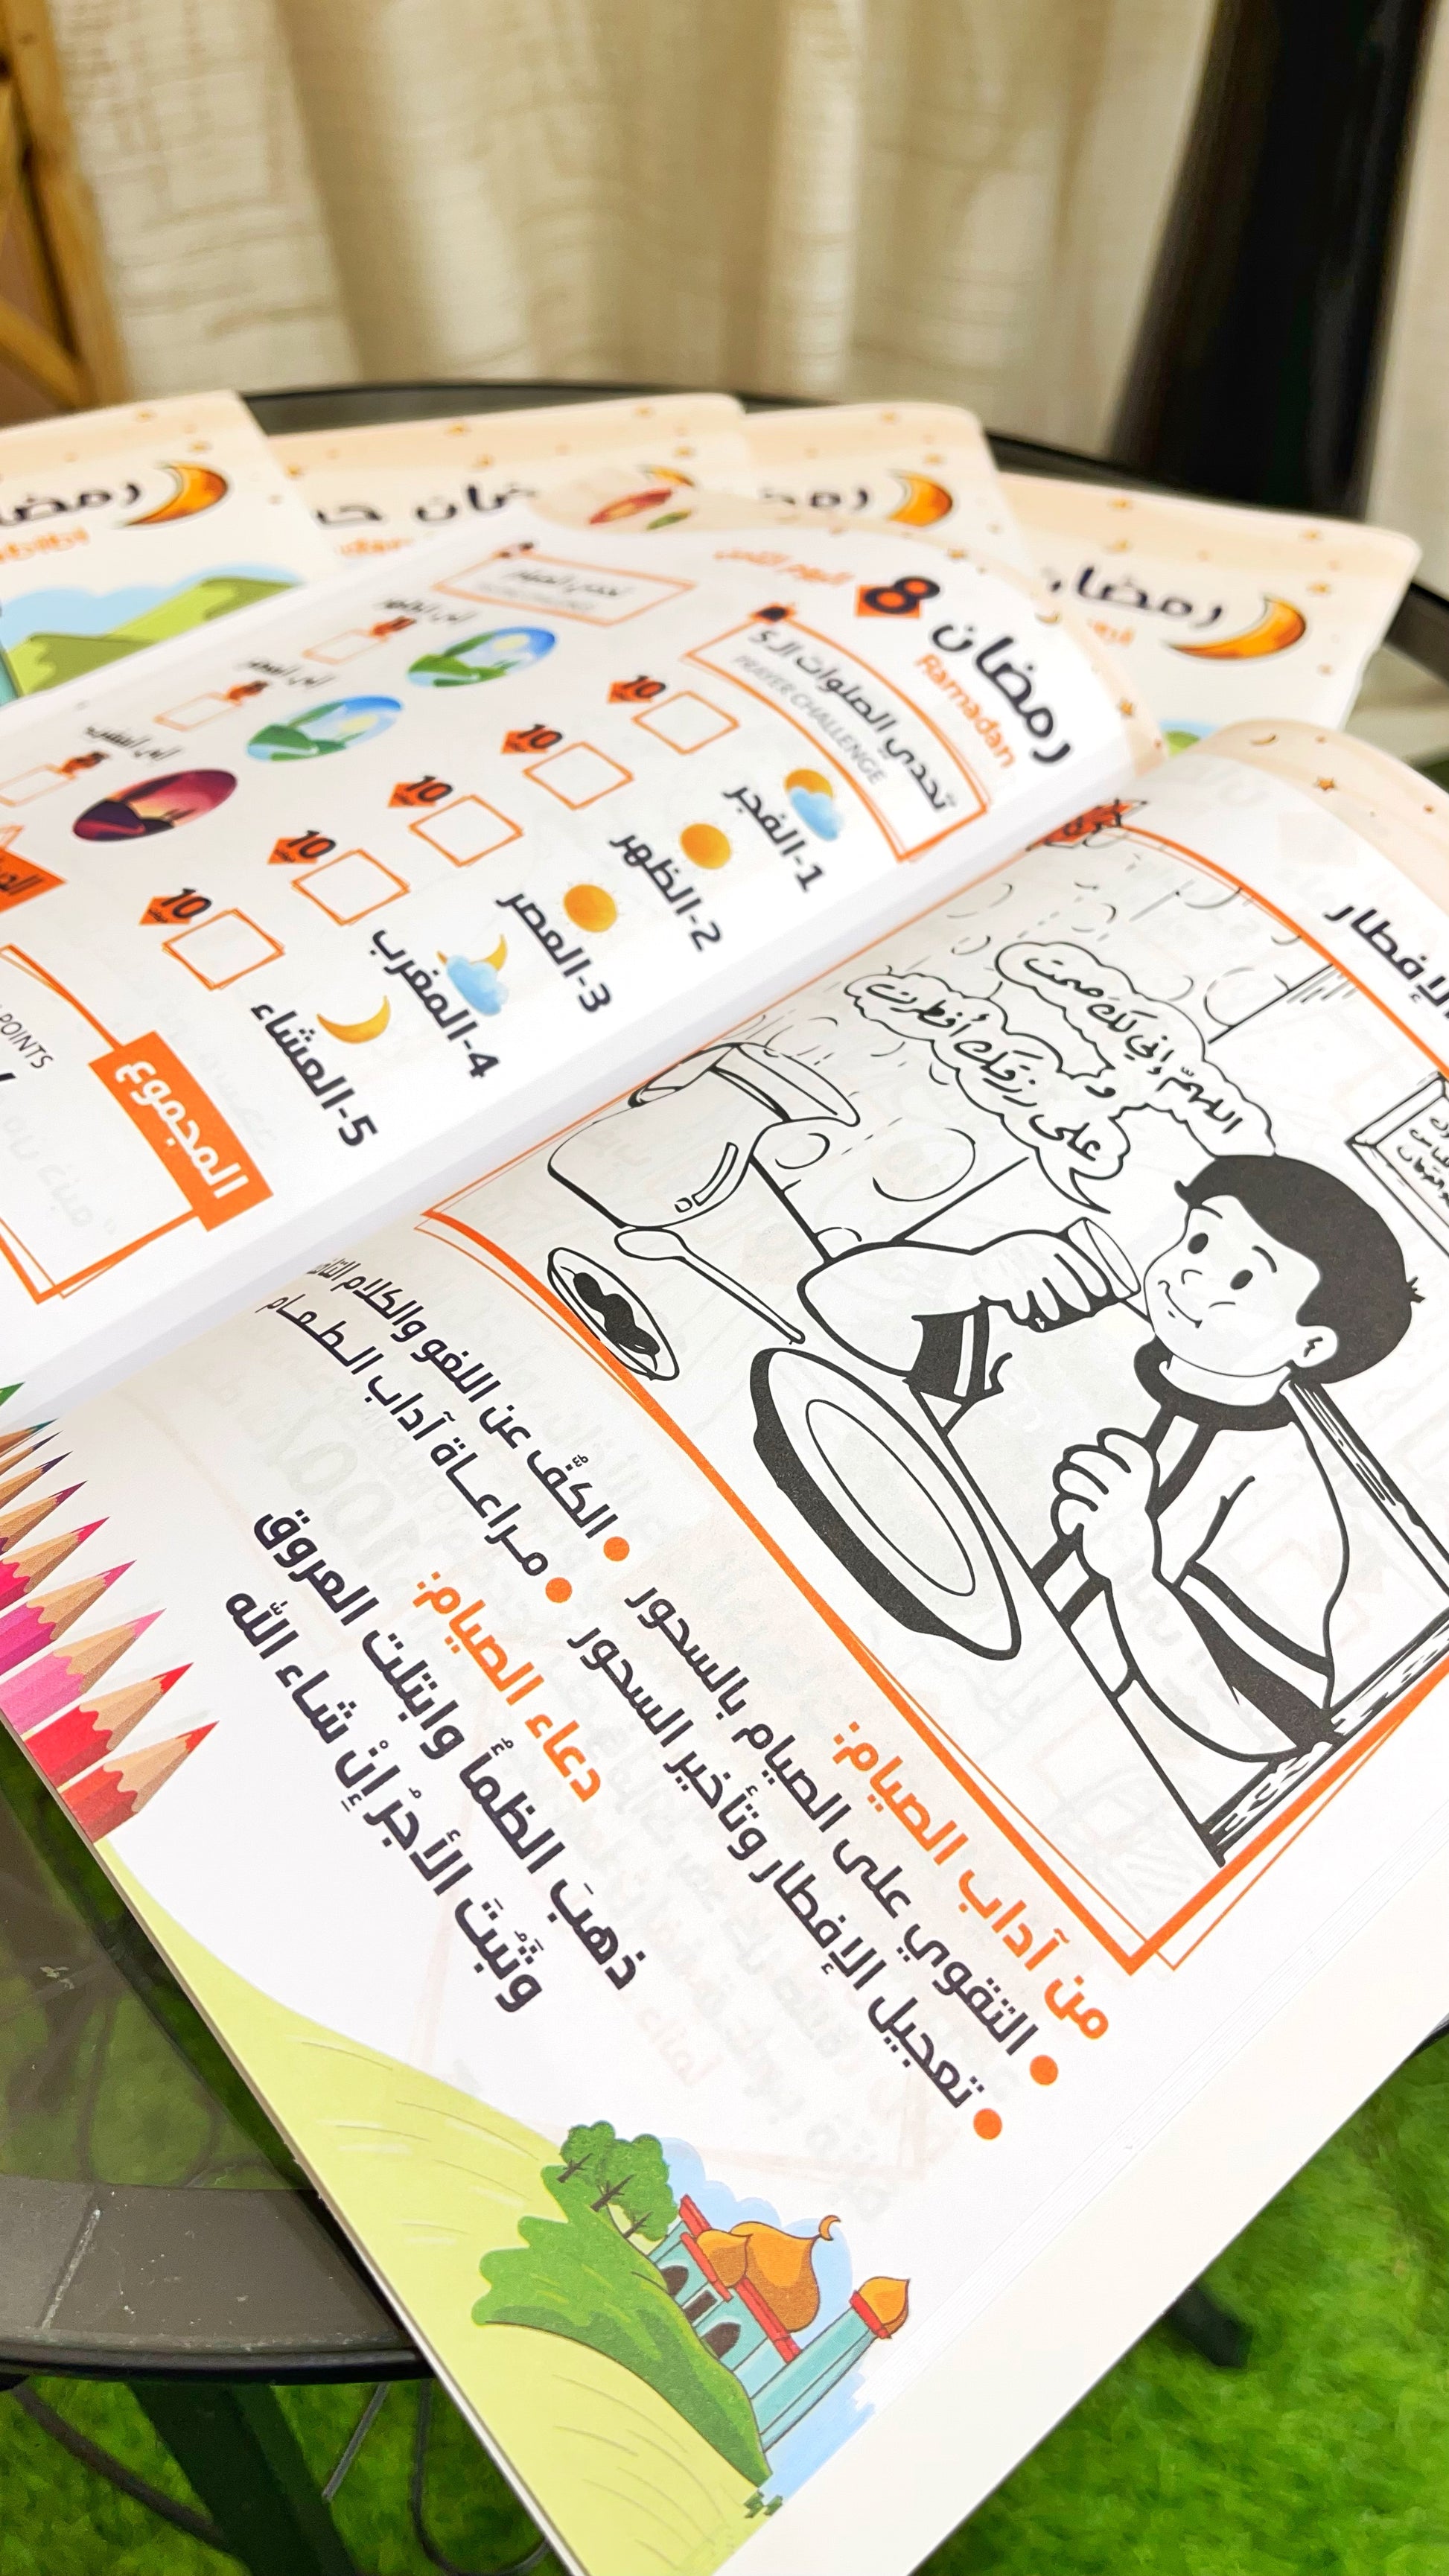 رمضان
رمضان
رمضان
رمضان 8 اليوم الثامن
Ramadan
تحدي الصلوات الـ5
PRAYER CHALLENGE
تحدي الصيام
1-الفجر
10
2-الظهر
10
3-العصر
10
4-المغرب
10
5-العشاء
10
إلى الظهر
إلى العصر
إلى المغرب
المجموع
POINTS
الإفطار
اللهمّ إني لك صمت
و
على رزقك أفطرت
من آداب الصيام:
التقوي على الصيام بالسحور
تعجيل الإفطار وتأخير السحور
الكف عن اللغو والكلام
مراعاة آداب الطعام
دعاء الصيام:
ذهبَ الظمأُ وابتلت العروق
وثَبُتَ الأجرُ إنْ شاء الله